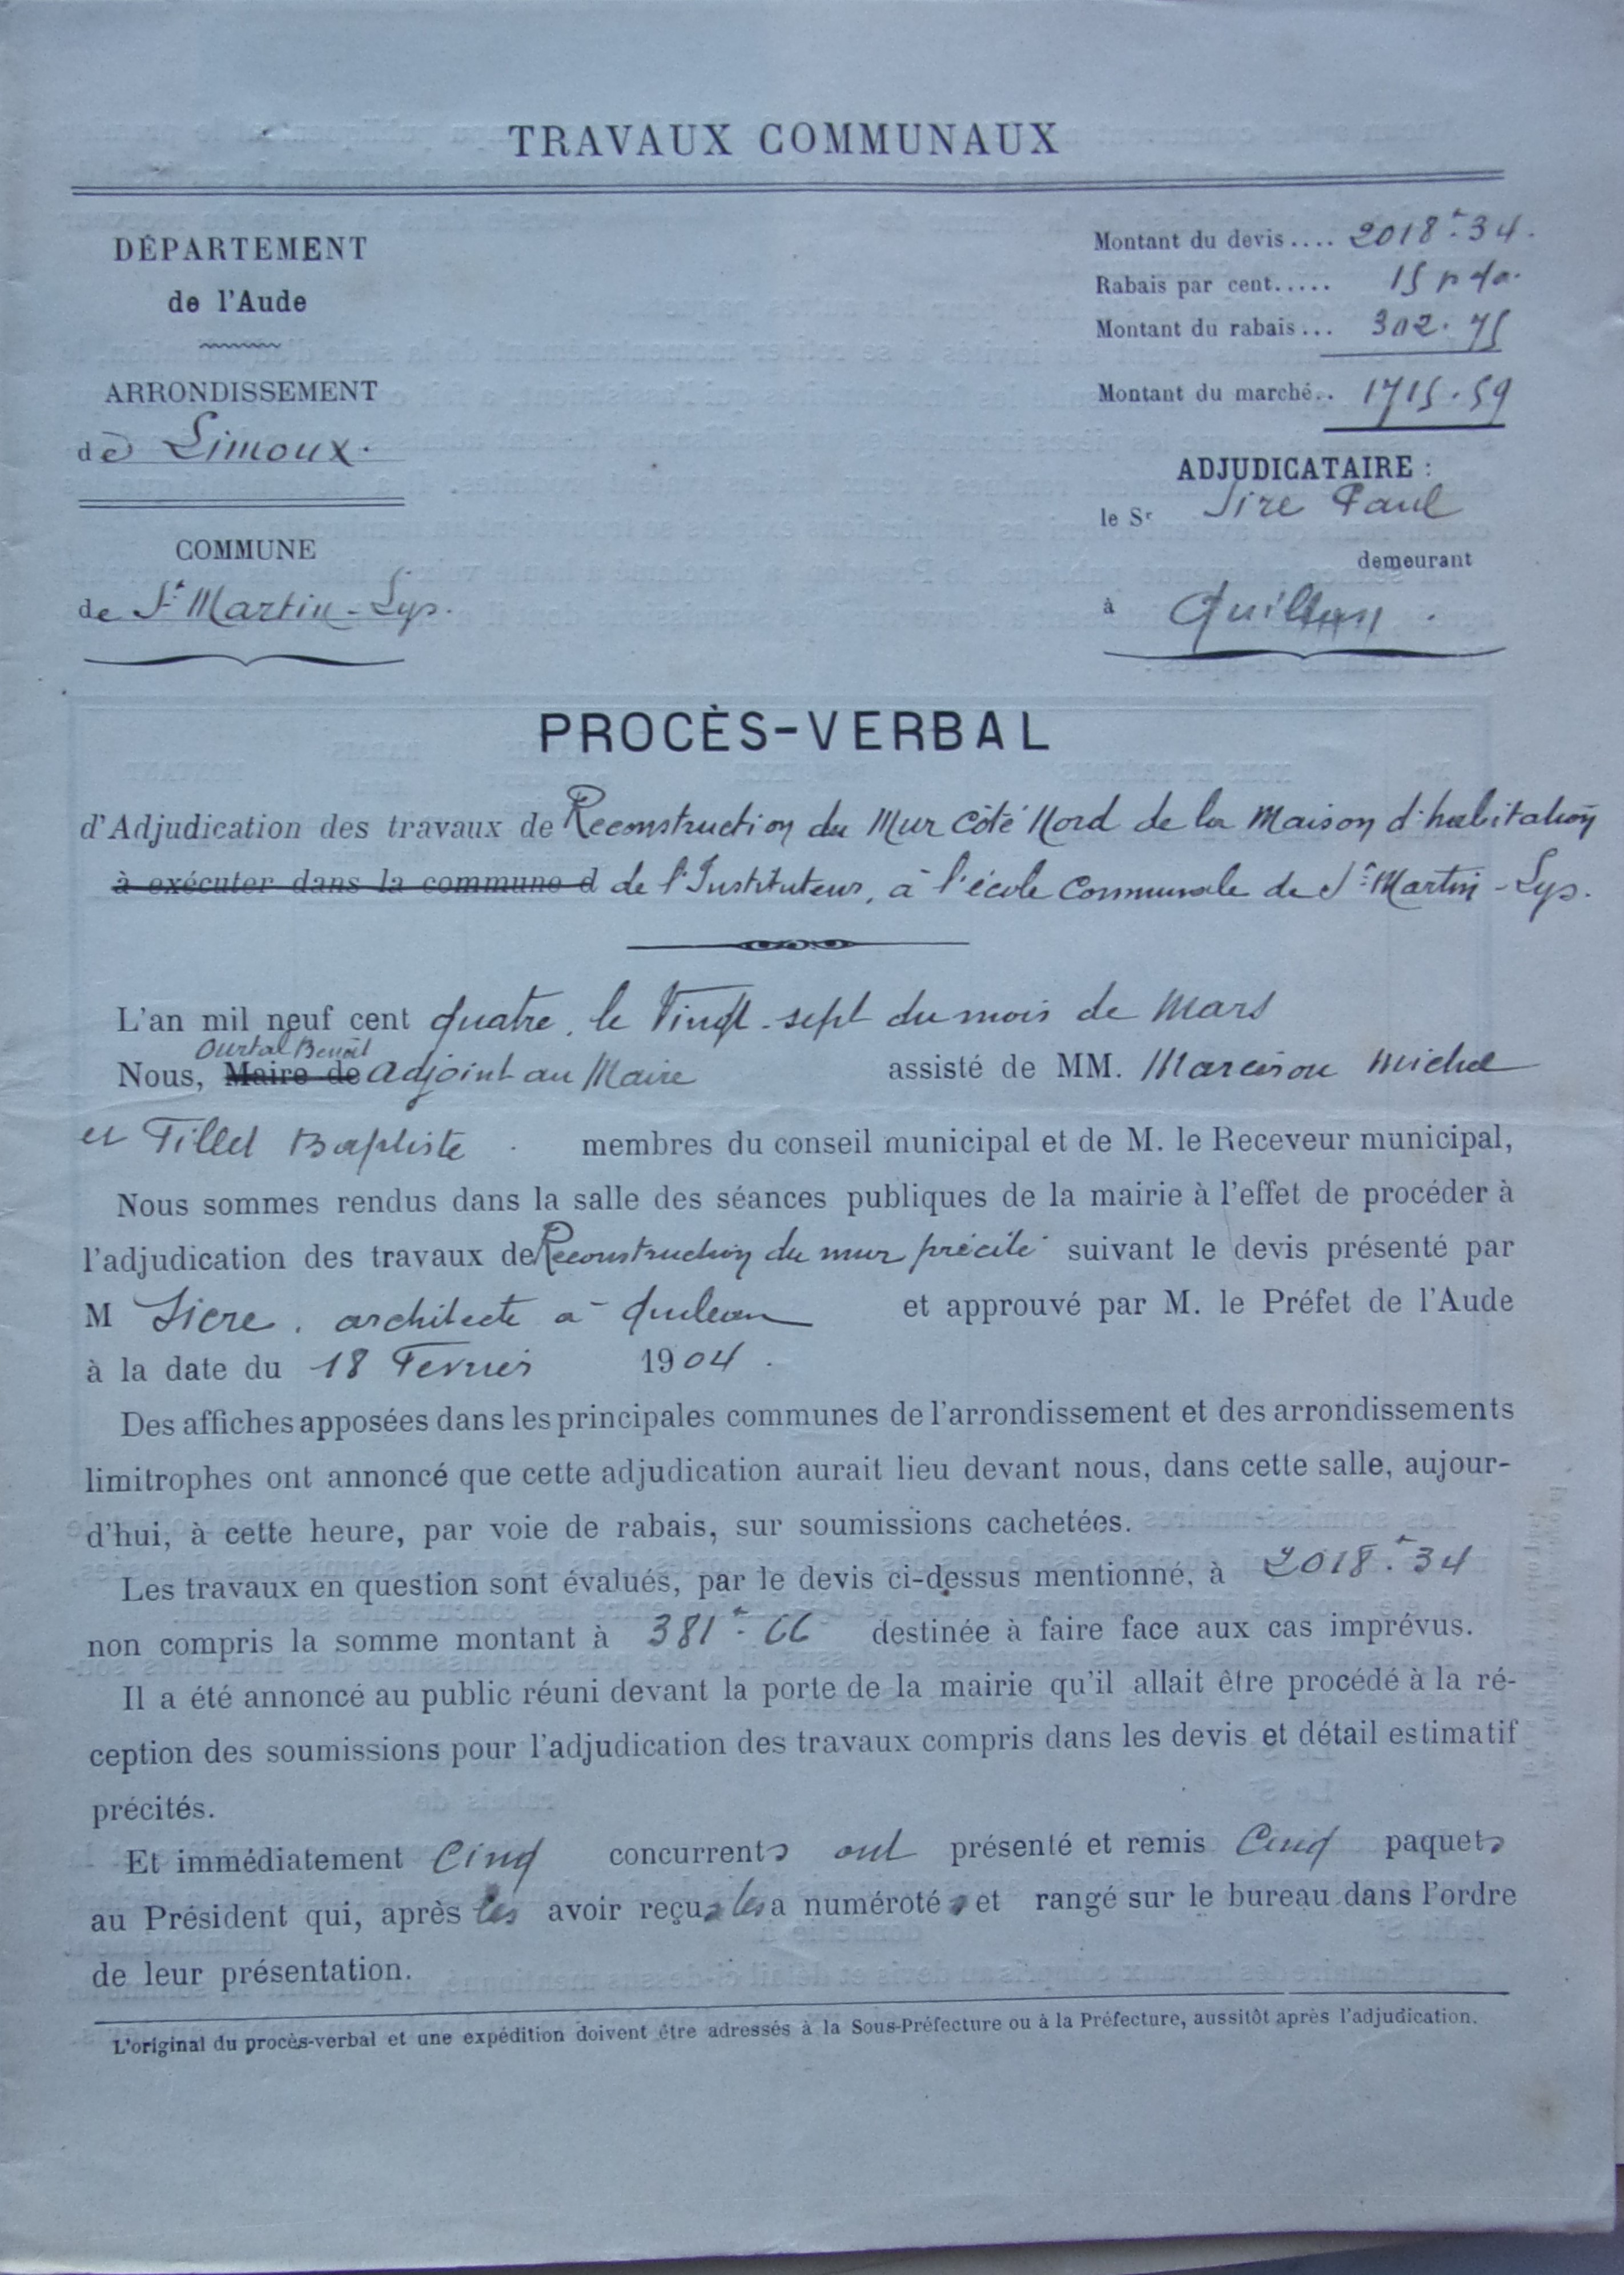 TRAVAUX COMMUNAUX
DÉPARTEMENT
de l'Aude
ARRONDISSEMENT
de Limoux.
COMMUNE
de St Martin-Lys.
Montant du devis.... 2018f.34.
Rabais par cent..... 15 p %.
Montant du rabais... 302.75
Montant du marché.. 1715.59
ADJUDICATAIRE :
le Sr Sire Paul
demeurant
à Quillan.
PROCÈS-VERBAL
d'Adjudication des travaux de Reconstruction du Mur côté Nord de la Maison d'habitation
à exécuter dans la commune d de l'Instituteur, à l'école Communale de St Martin-Lys.
L'an mil neuf cent quatre, le Vingt-sept du mois de Mars
Ourtal Benoît
Nous, Maire de adjoint au Maire assisté de MM. Michel
et Tillet Baptiste. membres du conseil municipal et de M. le Receveur municipal,
Nous sommes rendus dans la salle des séances publiques de la mairie à l'effet de procéder à
l'adjudication des travaux de Reconstruction du mur précité suivant le devis présenté par
M Sicre, architecte à Quillan et approuvé par M. le Préfet de l'Aude
à la date du 18 Fevrier 1904.
Des affiches apposées dans les principales communes de l'arrondissement et des arrondissements
limitrophes ont annoncé que cette adjudication aurait lieu devant nous, dans cette salle, aujour-
d'hui, à cette heure, par voie de rabais, sur soumissions cachetées.
Les travaux en question sont évalués, par le devis ci-dessus mentionné, à 2018f.34
non compris la somme montant à 381f.66 destinée à faire face aux cas imprévus.
Il a été annoncé au public réuni devant la porte de la mairie qu'il allait être procédé à la ré-
ception des soumissions pour l'adjudication des travaux compris dans les devis et détail estimatif
précités.
Et immédiatement Cinq concurrents ont présenté et remis Cinq paquets
au Président qui, après les avoir reçus les a numérotés et rangé sur le bureau dans l'ordre
de leur présentation.
L'original du procès-verbal et une expédition doivent être adressés à la Sous-Préfecture ou à la Préfecture, aussitôt après l'adjudication.